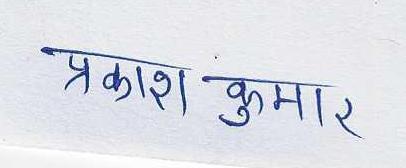 प्रकाश कुमार